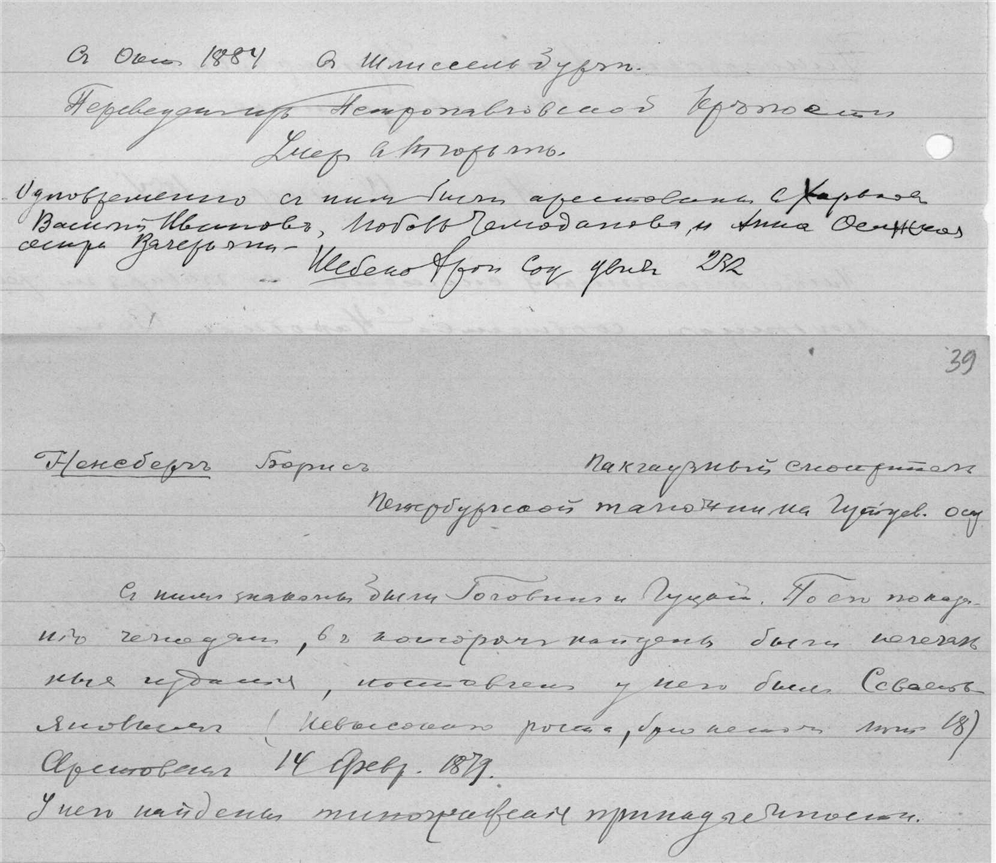 Съ Окт 1884 въ Шлиссельбургѣ.
Переведенъ изъ Петропавловской крѣпости
Умер въ тюрьмѣ.
Одновременно съ ним были арестованы въ Харькове
Василий Иванов, Любовь Чемоданова, и Анна
сестра
Шебеко Хрон Соц движ 232
39
Ненсбергъ Борисъ Пакгаузный смотритель
Петербургской таможни на Гутуев. остр
Съ ним знакомы были Головин и Гуцой. По его показа-
нію чемодан, въ котором найдены были печатан
ныя издания, поставлен у него был Севасть
яновым (невысокого роста, брюнетом лет 18)
Арестован 14 Февр. 1879.
У него найдены типографския принадлежности.